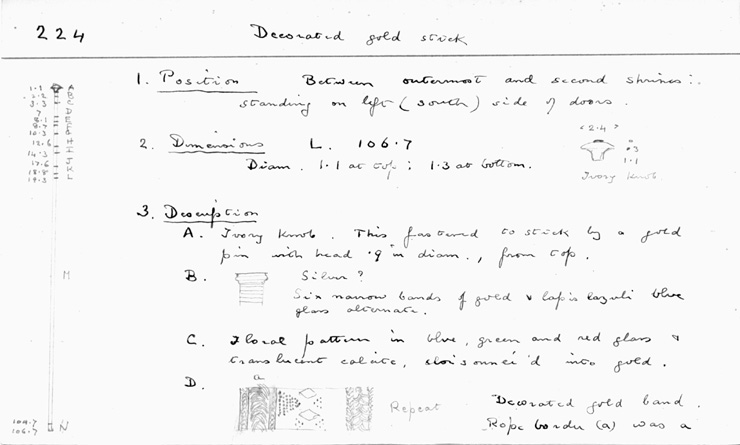 224 Decorated gold stick
1. Position Between outermost and second shrines:
standing on left (south) side of doors.
2. Dimensions L. 106.7
Diam. 1.1 at top; 1.3 at bottom.
<2.4>
.3
1.1
Ivory Knob
3. Description
A. Ivory Knob. This fastened to stick by a gold
pin with head .9 in diam., from top.
B. Silver?
Six narrow bands of gold & lapis lazuli blue
glass alternate.
C. Floral pattern in blue, green and red glass &
translucent calcite, cloisonnei'd into gold.
D. a Repeat Decorated gold band.
Rope border (a) was a
1.1 A
2.2 B
3.3 C
7 D
8.1 E
8.7 F
10.3 G
12.6 H
14.3
17.6
18.8 K
19.3 L
M
104.7
106.7 N